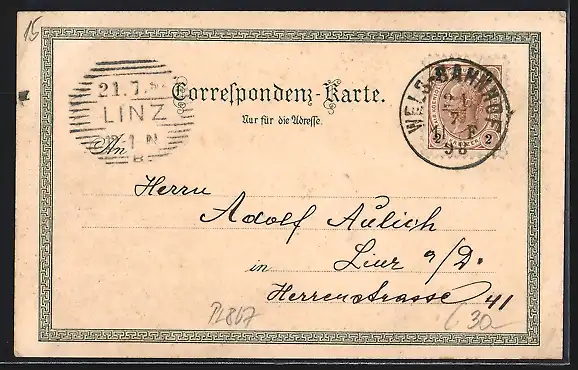 15
21.7.
LINZ
1 N
B
Correspondenz-Karte.
Nur für die Adresse.
WELS-BAHNHOF
21
7
11 F
98
2 2
An
Herrn
Adolf Aulich
in Linz a/D.
Herrenstrasse 41
30-